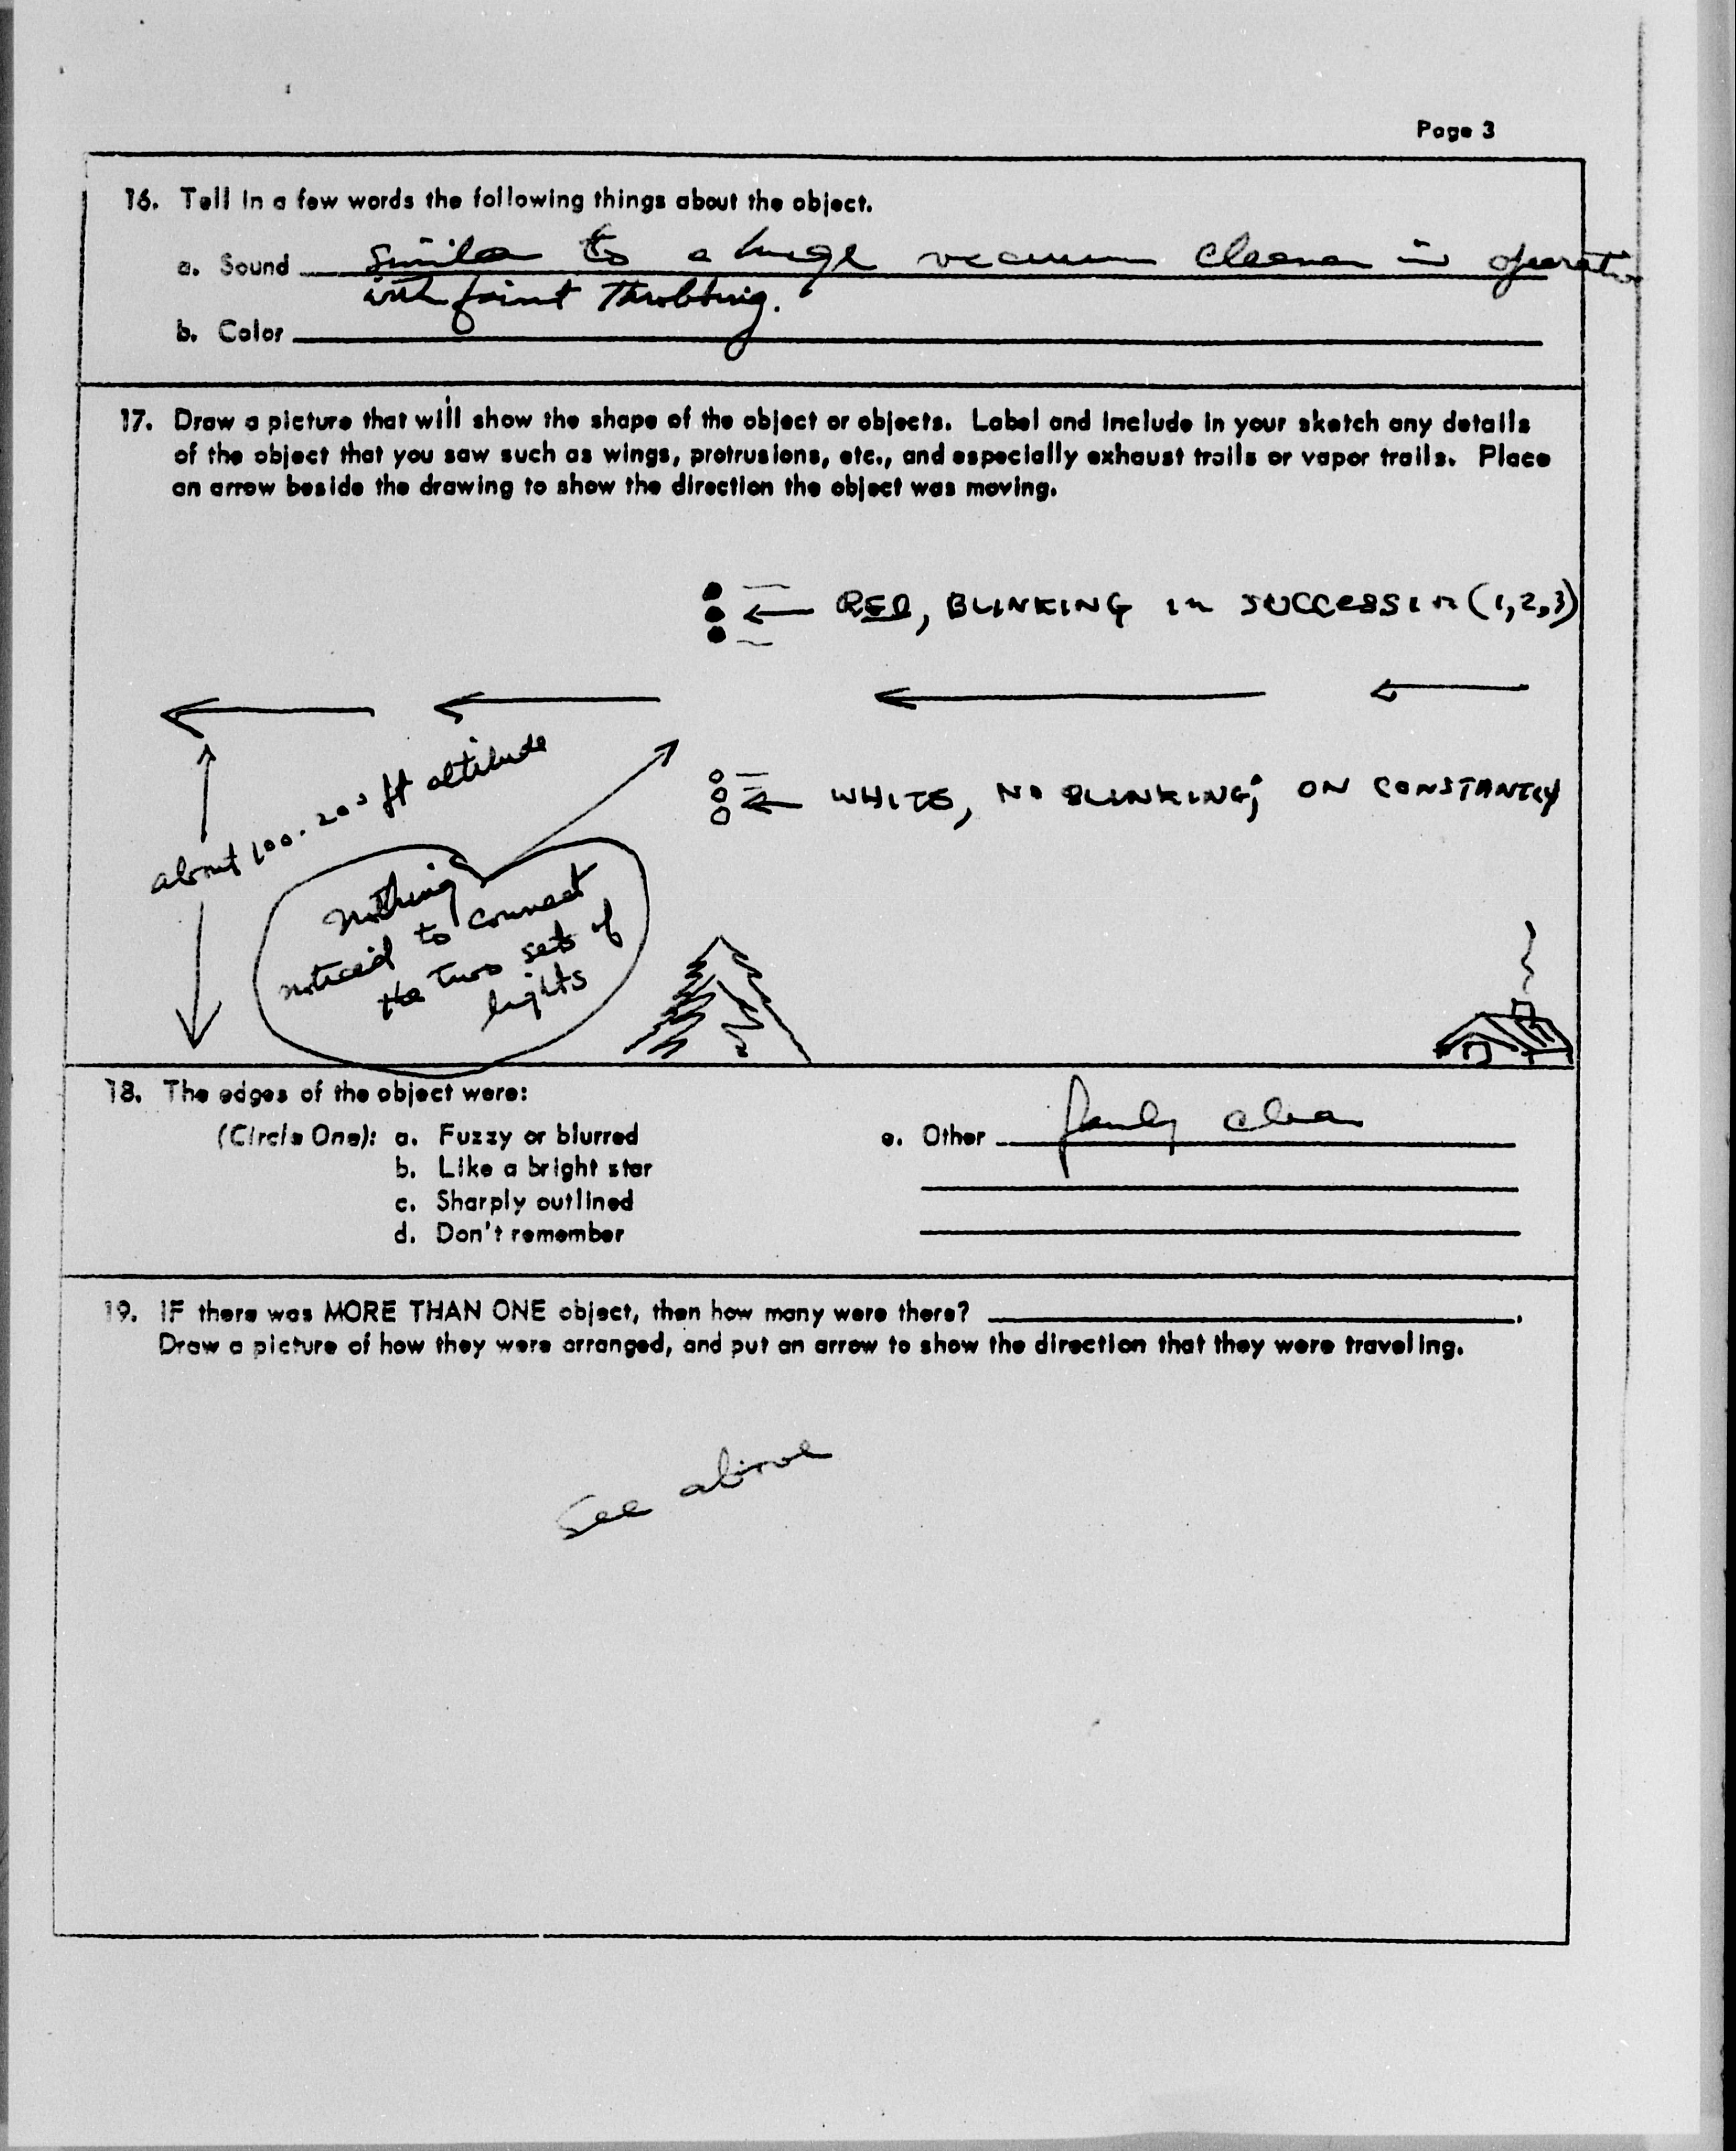 Page 3
16. Tell in a few words the following things about the object.
a. Sound similar to a huge vacuum cleaner in operation
with faint throbbing.
b. Color
17. Draw a picture that will show the shape of the object or objects. Label and include in your sketch any details
of the object that you saw such as wings, protrusions, etc., and especially exhaust trails or vapor trails. Place
an arrow beside the drawing to show the direction the object was moving.
RED, BLINKING in SUCCESSIn (1,2,3)
WHITE, NO BLINKING; ON CONSTANTLY
about 100-200 ft altitude
nothing
noticed to connect
the two sets of
lights
18. The edges of the object were:
(Circle One): a. Fuzzy or blurred
b. Like a bright star
c. Sharply outlined
d. Don't remember
e. Other fairly clear
19. IF there was MORE THAN ONE object, then how many were there? .
Draw a picture of how they were arranged, and put an arrow to show the direction that they were traveling.
See above